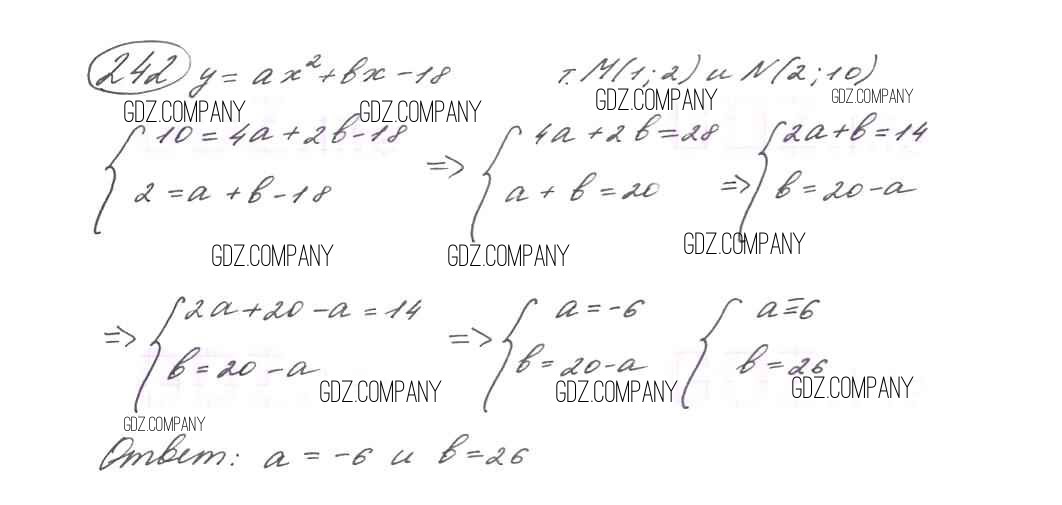 242 y = ax² + bx - 18 т. M(1; 2) и N(2; 10)
GDZ.COMPANY GDZ.COMPANY GDZ.COMPANY GDZ.COMPANY
{ 10 = 4a + 2b - 18 { 4a + 2b = 28 { 2a + b = 14
2 = a + b - 18 => a + b = 20 => b = 20 - a
GDZ.COMPANY GDZ.COMPANY GDZ.COMPANY
{ 2a + 20 - a = 14 { a = -6 { a = -6
=> b = 20 - a => b = 20 - a b = 26
GDZ.COMPANY GDZ.COMPANY GDZ.COMPANY
GDZ.COMPANY
Ответ: a = -6 и b = 26